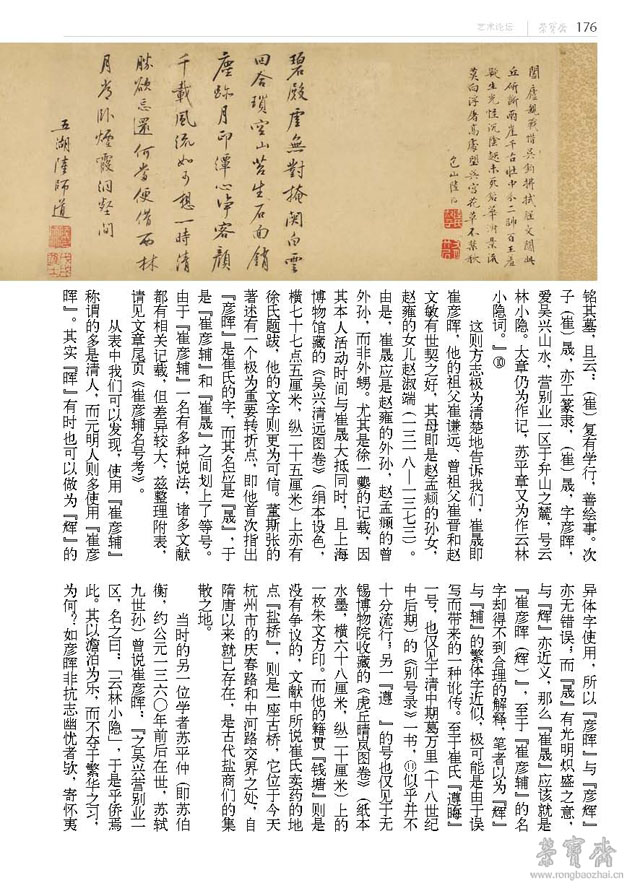 艺术论坛 荣宝斋 176
包山陸治
碧殿虛無對掩関白雲
回合瑣空山苔生石面銷
塵跡月印潭心淨客顏
千載風流如可想一時清
勝欲忘還何當便借西林
月常卧煙霞澗壑間
五湖陸師道
铭其墓，且云：（崔）复有学行，善绘事。次
子（崔）晟，亦工篆隶，（崔）晟，字彦晖，
爱吴兴山水，营别业一区于弁山之麓，号云
林小隐。大章仍为作记，苏平章又为作云林
小隐词。』⑩
这则方志极为清楚地告诉我们，崔晟即
崔彦晖，他的祖父崔谦远、曾祖父崔晋和赵
文敏有世契之好，其母即是赵孟頫的孙女，
赵雍的女儿赵淑端（一三一八—一三七三）。
由是，崔晟应是赵雍的外孙，赵孟頫的曾
外孙，而非外甥。尤其是徐一夔的记载，因
其本人活动时间与崔晟大抵同时，且上海
博物馆藏的《吴兴清远图卷》（绢本设色，
横七十七点五厘米，纵二十五厘米）上亦有
徐氏题跋，他的文字则更为可信。董斯张的
著述有一个极为重要转折点，即他首次指出
『彦晖』是崔氏的字，而其名应是『晟』，于
是『崔彦辅』和『崔晟』之间划上了等号。
由于『崔彦辅』一名有多种说法，诸多文献
都有相关记载，但差异较大，兹整理附表，
请见文章尾页《崔彦辅名号考》。
从表中我们可以发现，使用『崔彦辅』
称谓的多是清人，而元明人则多使用『崔彦
晖』。其实『晖』有时也可以做为『辉』的
异体字使用，所以『彦晖』与『彦辉』
亦无错误；而『晟』有光明炽盛之意，
与『辉』亦近义，那么『崔晟』应该就是
『崔彦晖（辉）』，至于『崔彦辅』的名
字却得不到合理的解释，笔者以为『辉』
与『辅』的繁体字近似，极可能是由于误
写而带来的一种讹传。至于崔氏『遵晦』
一号，也仅见于清中期葛万里（十八世纪
中后期）的《别号录》一书，⑪似乎并不
十分流行；另一『遵 』的号也仅见于无
锡博物院收藏的《虎丘晴岚图卷》（纸本
水墨，横六十八厘米，纵二十厘米）上的
一枚朱文方印。而他的籍贯『钱塘』则是
没有争议的，文献中所说崔氏卖药的地
点『盐桥』，则是一座古桥，它位于今天
杭州市的庆春路和中河路交界之处，自
隋唐以来就已存在，是古代盐商们的集
散之地。
当时的另一位学者苏平仲（即苏伯
衡，约公元一三六〇年前后在世，苏轼
九世孙）曾说崔彦晖：『之吴兴营别业一
区，名之曰：「云林小隐」，于是乎侨焉
此。其以澹泊为乐，而不夺于繁华之习，
为何？如彦晖非抗志幽忧者欤，寄怀夷
荣宝斋
www.rongbaozhai.cn